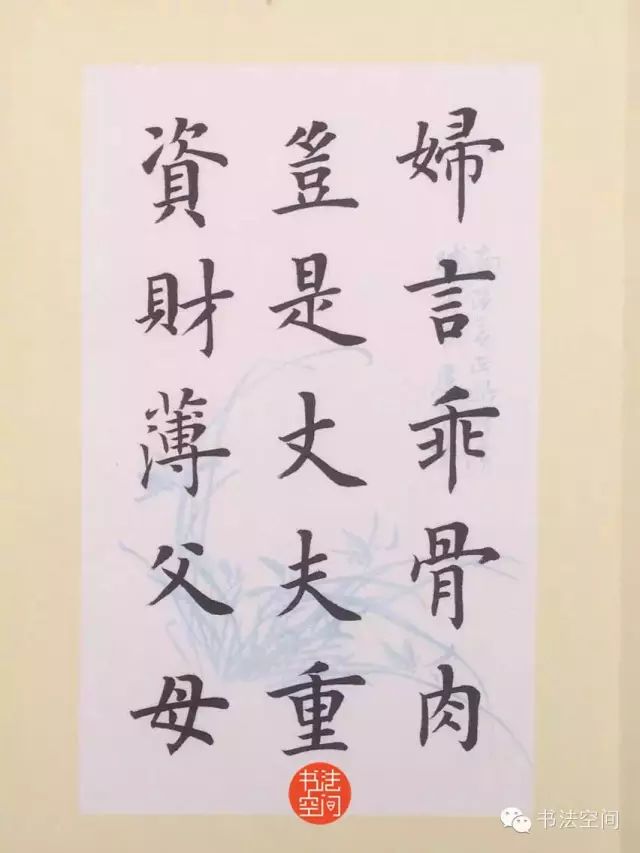 婦言乖骨肉
豈是丈夫重
資財薄父母
书法
空间
书法空间